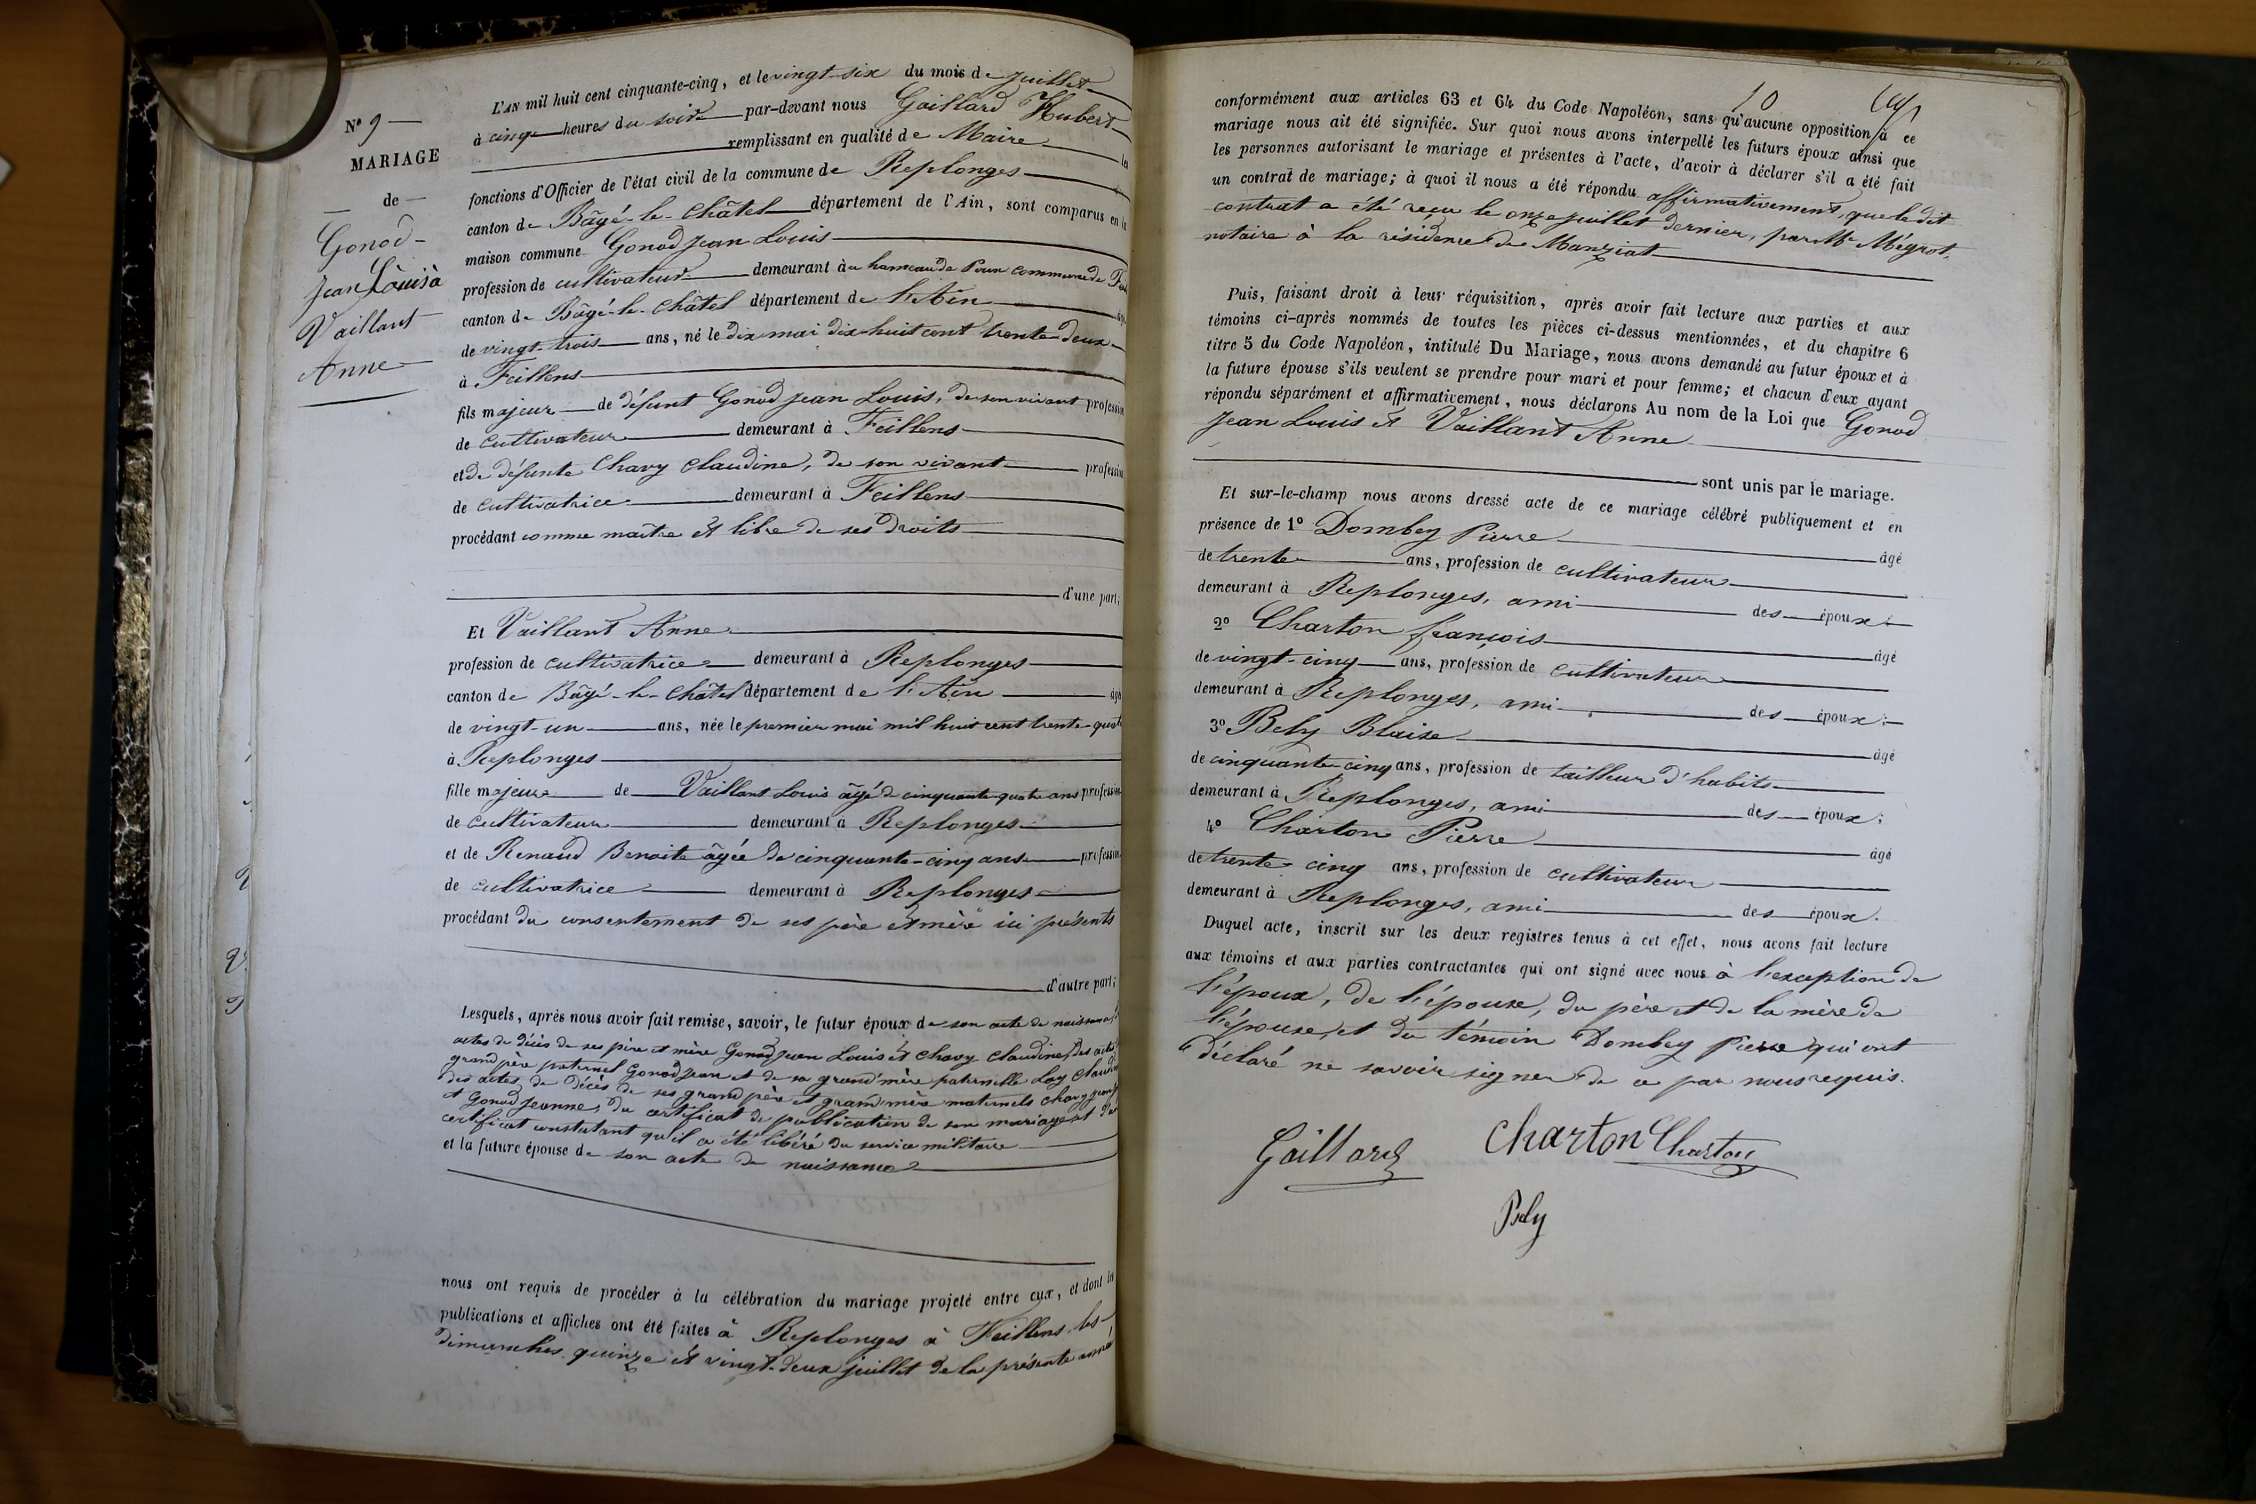 N° 9
MARIAGE
de
Gonod
Jean Louis à
Vaillant
Anne
L'AN mil huit cent cinquante-cinq, et le vingt-six du mois de juillet
à cinq heures du soir par-devant nous Gaillard Hubert
remplissant en qualité de Maire les
fonctions d'Officier de l'état civil de la commune de Replonges
canton de Bâgé-le-Châtel département de l'Ain, sont comparus en la
maison commune Gonod Jean Louis
profession de cultivateur demeurant au hameau de commune de
canton de Bâgé-le-Châtel département de l'Ain
de vingt-trois ans, né le dix mai dix-huit cent trente-deux
à Feillens
fils majeur de défunt Gonod Jean Louis, de son vivant profession
de cultivateur demeurant à Feillens
et de défunte Chavy Claudine, de son vivant profession
de cultivatrice demeurant à Feillens
procédant comme maître et libre de ses droits
d'une part;
Et Vaillant Anne
profession de cultivatrice demeurant à Replonges
canton de Bâgé-le-Châtel département de l'Ain âgé
de vingt-un ans, née le premier mai mil huit cent trente-quatre
à Replonges
fille majeure de Vaillant Louis âgé de cinquante-quatre ans profession
de cultivateur demeurant à Replonges
et de Renaud Benoite âgée de cinquante-cinq ans profession
de cultivatrice demeurant à Replonges
procédant du consentement de ses père et mère ici présents
d'autre part;
Lesquels, après nous avoir fait remise, savoir, le futur époux de son acte de naissance,
actes de décès de ses père et mère Gonod Jean Louis et Chavy Claudine, des actes
grand père paternel Gonod Jean et de sa grand'mère paternelle
des actes de décès de ses grand père et grand'mère maternels Chavy
et Gonod Jeanne, du certificat de publication de son mariage et d'un
certificat constatant qu'il a été libéré du service militaire
et la future épouse de son acte de naissance
nous ont requis de procéder à la célébration du mariage projeté entre eux, et dont les
publications et affiches ont été faites à Replonges à Feillens, les
dimanches quinze et vingt-deux juillet de la présente année
10
conformément aux articles 63 et 64 du Code Napoléon, sans qu'aucune opposition à ce
mariage nous ait été signifiée. Sur quoi nous avons interpellé les futurs époux ainsi que
les personnes autorisant le mariage et présentes à l'acte, d'avoir à déclarer s'il a été fait
un contrat de mariage; à quoi il nous a été répondu affirmativement, que le dit
contrat a été reçu le onze juillet dernier, par Me Mégrot,
notaire à la résidence de Manziat
Puis, faisant droit à leur réquisition, après avoir fait lecture aux parties et aux
témoins ci-après nommés de toutes les pièces ci-dessus mentionnées, et du chapitre 6
titre 5 du Code Napoléon, intitulé Du Mariage, nous avons demandé au futur époux et à
la future épouse s'ils veulent se prendre pour mari et pour femme; et chacun d'eux ayant
répondu séparément et affirmativement, nous déclarons Au nom de la Loi que Gonod
Jean Louis et Vaillant Anne
sont unis par le mariage.
Et sur-le-champ nous avons dressé acte de ce mariage célébré publiquement et en
présence de 1° Dombey Pierre âgé
de trente ans, profession de cultivateur
demeurant à Replonges, ami des époux
2° Charton françois âgé
de vingt-cinq ans, profession de cultivateur
demeurant à Replonges, ami des époux;
3° Bely Blaise âgé
de cinquante-cinq ans, profession de tailleur d'habits
demeurant à Replonges, ami des époux;
4° Charton Pierre âgé
de trente-cinq ans, profession de cultivateur
demeurant à Replonges, ami des époux.
Duquel acte, inscrit sur les deux registres tenus à cet effet, nous avons fait lecture
aux témoins et aux parties contractantes qui ont signé avec nous à l'exception de
l'époux, de l'épouse, du père et de la mère de
l'épouse, et du témoin Dombey Pierre qui ont
déclaré ne savoir signer de ce par nous requis.
Gaillard
Charton Charton
Bely